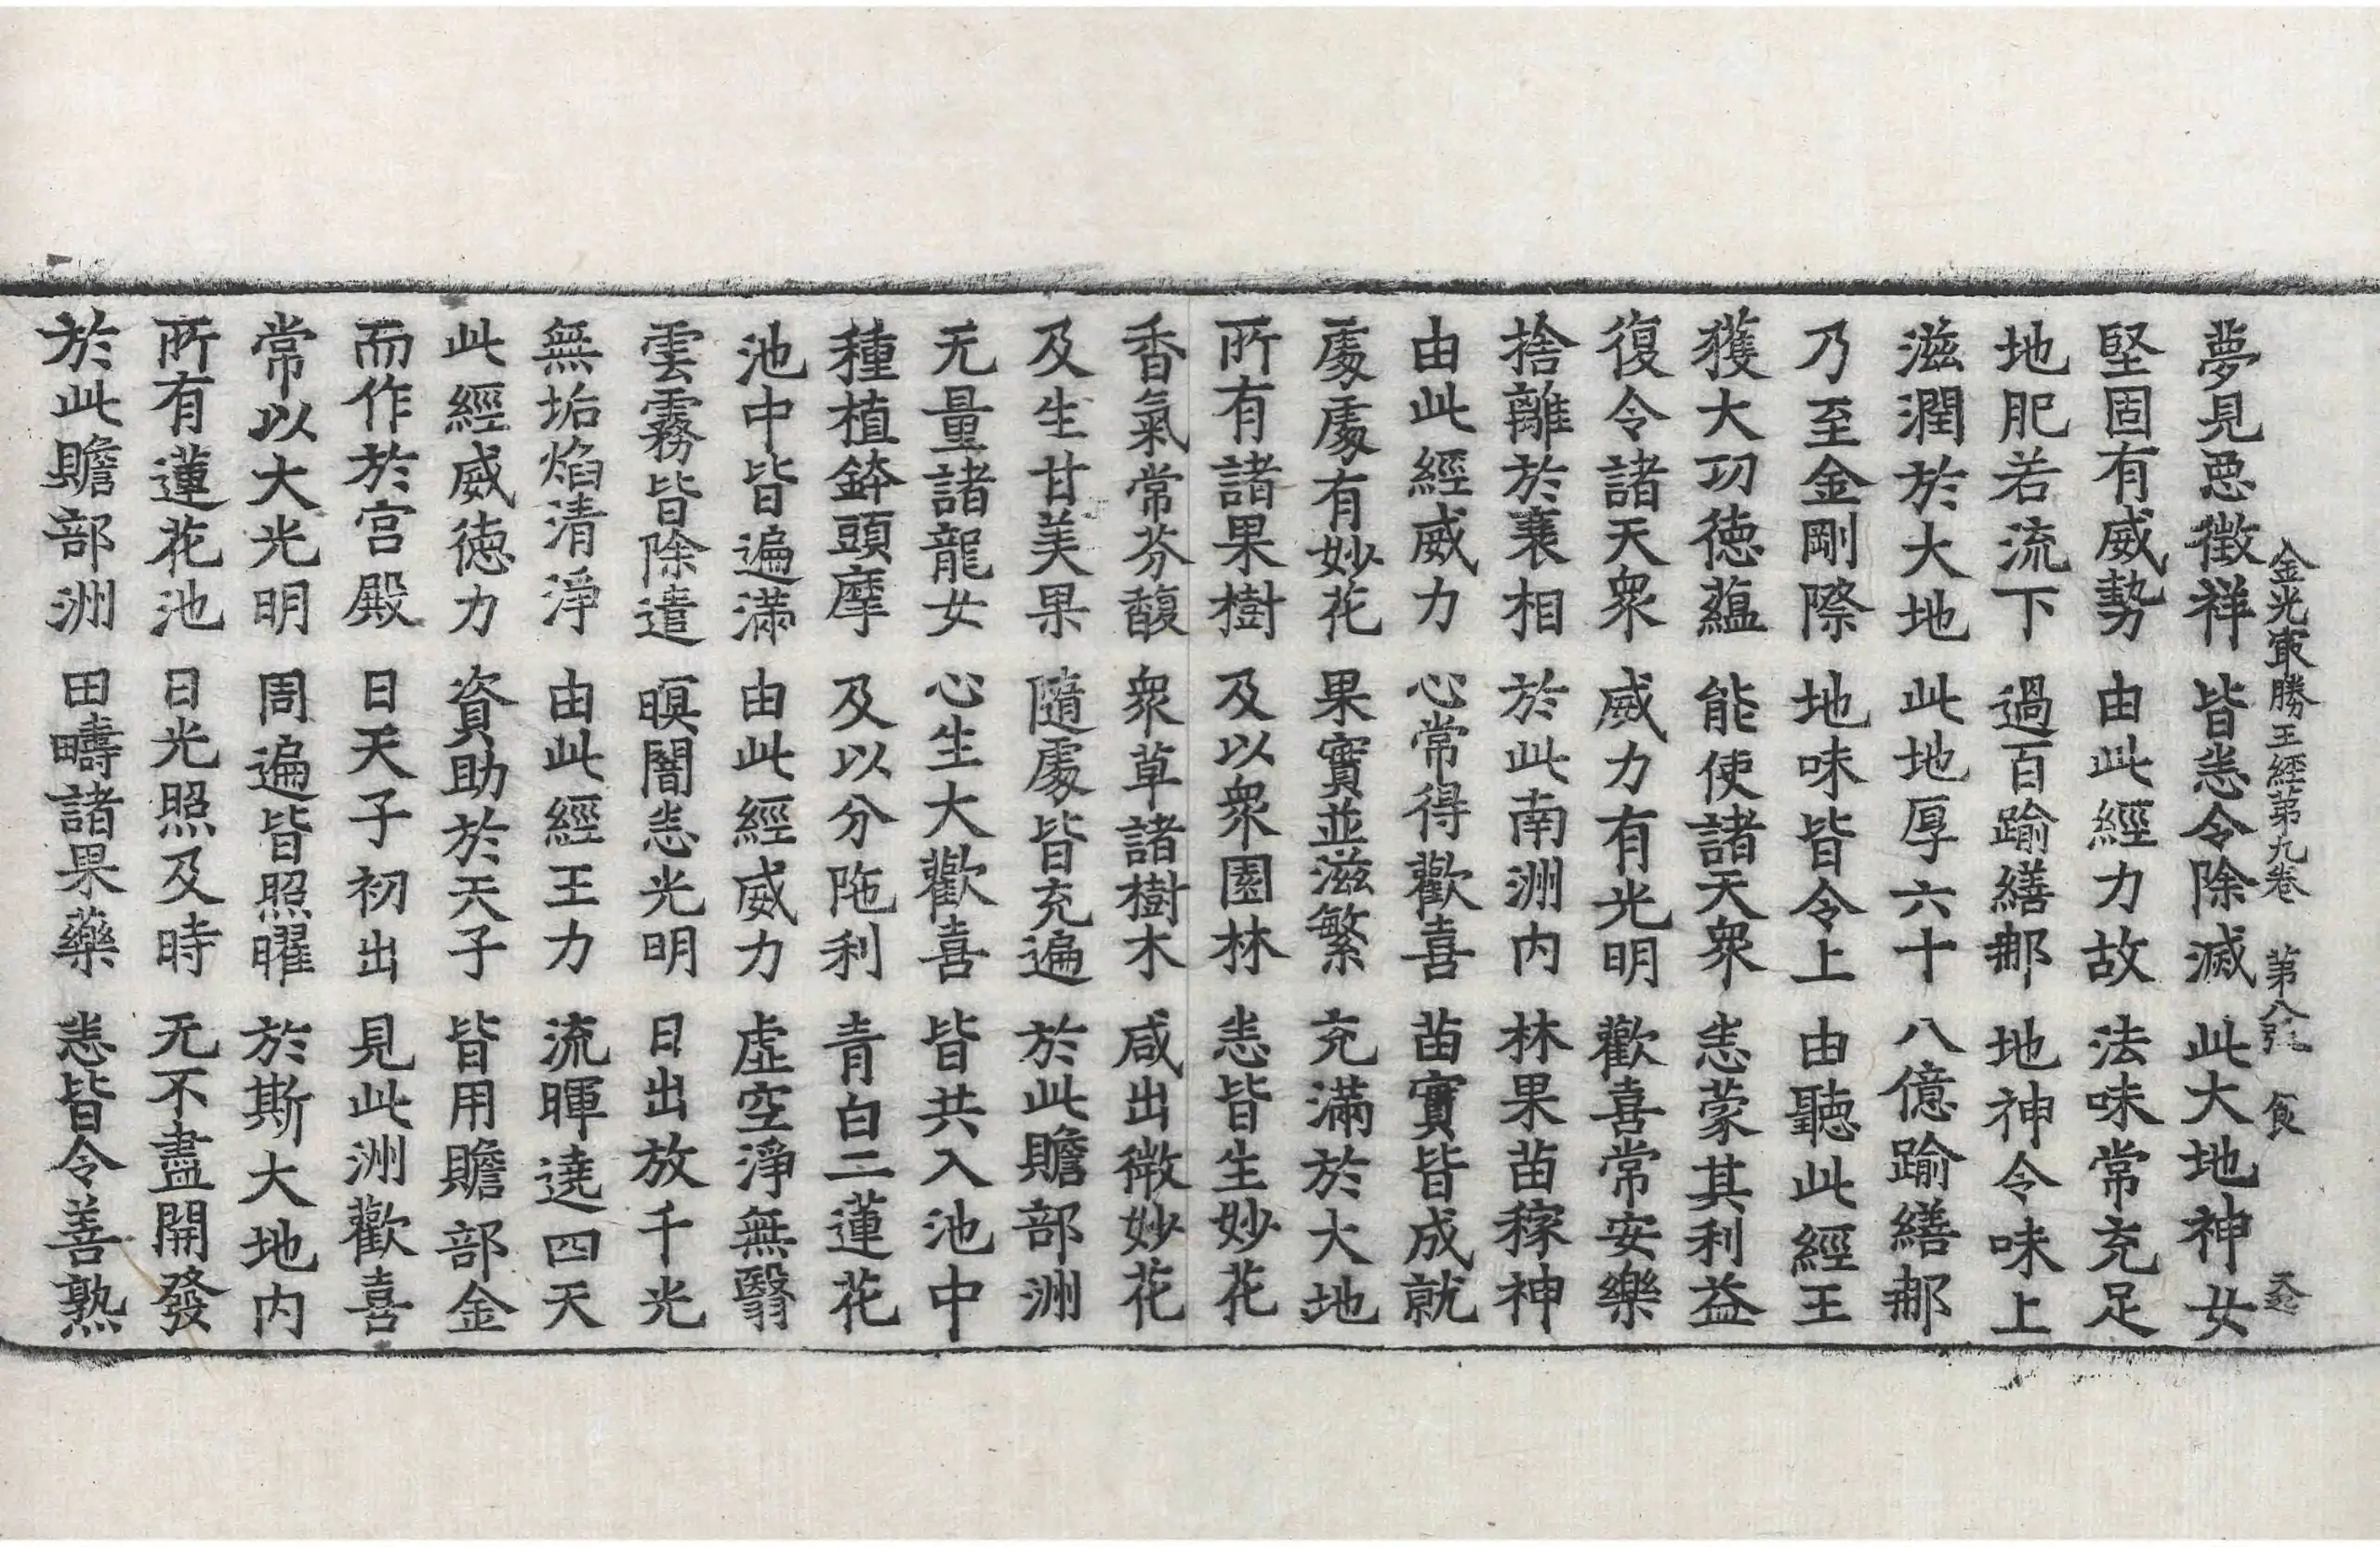 金光㝡勝王經第九卷 第八張 食
夢見惡徵祥 皆悉令除滅 此大地神女
堅固有威勢 由此經力故 法味常充足
地肥若流下 過百踰繕那 地神令味上
滋潤於大地 此地厚六十 八億踰繕那
乃至金剛際 地味皆令上 由聽此經王
獲大功德蘊 能使諸天衆 悉蒙其利益
復令諸天衆 威力有光明 歡喜常安樂
捨離於衰相 於此南洲内 林果苗稼神
由此經威力 心常得歡喜 苗實皆成就
處處有妙花 果實並滋繁 充滿於大地
所有諸果樹 及以衆園林 悉皆生妙花
香氣常芬馥 衆草諸樹木 咸出微妙花
及生甘美果 隨處皆充遍 於此贍部洲
无量諸龍女 心生大歡喜 皆共入池中
種植鉢頭摩 及以分陁利 青白二蓮花
池中皆遍滿 由此經威力 虛空淨無翳
雲霧皆除遣 暝闇悉光明 日出放千光
無垢焰清淨 由此經王力 流暉遶四天
此經威德力 資助於天子 皆用贍部金
而作於宮殿 日天子初出 見此洲歡喜
常以大光明 周遍皆照曜 於斯大地内
所有蓮花池 日光照及時 无不盡開發
於此贍部洲 田疇諸果藥 悉皆令善熟